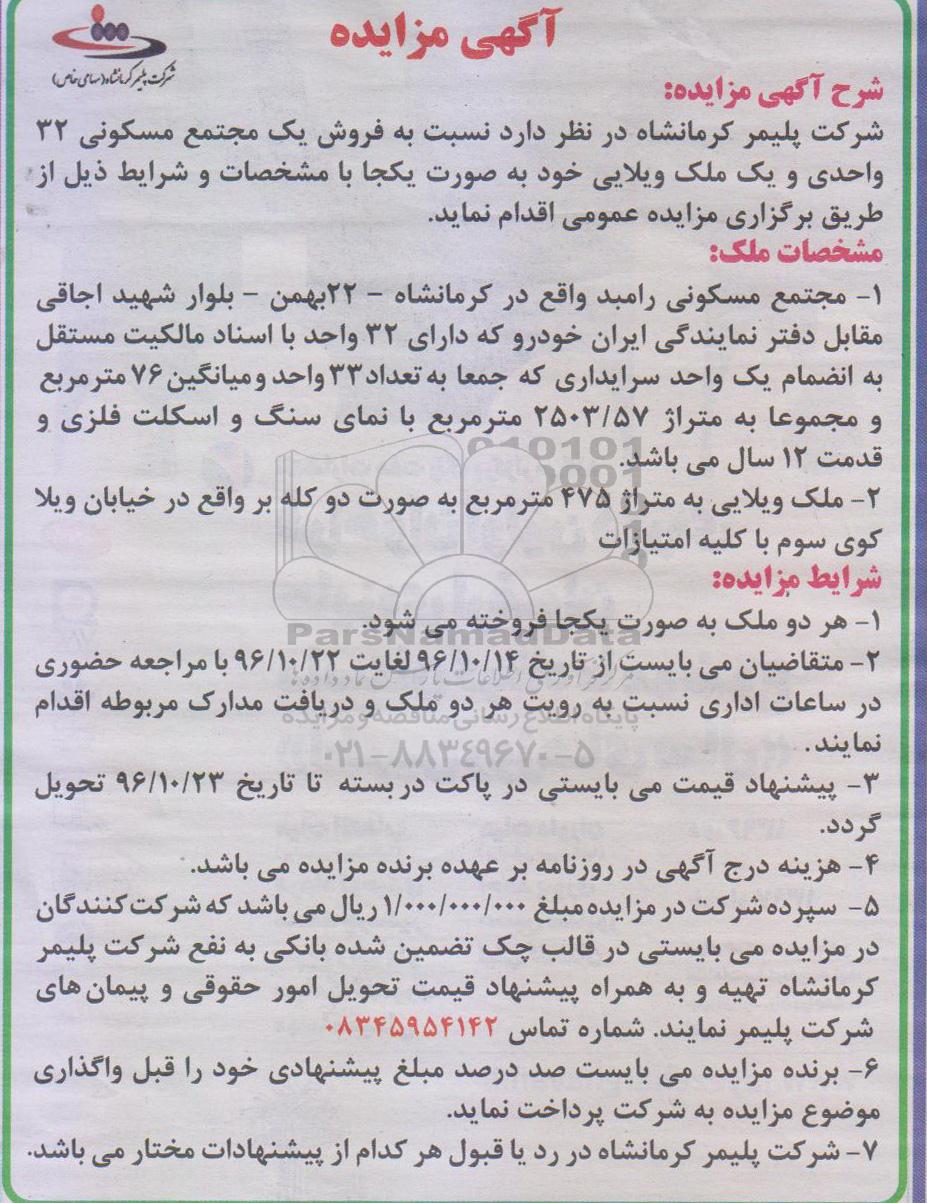 آگهی مزایده
شرکت پلیمر کرمانشاه (سهامی خاص)
شرح آگهی مزایده:
شرکت پلیمر کرمانشاه در نظر دارد نسبت به فروش یک مجتمع مسکونی ۳۲
واحدی و یک ملک ویلایی خود به صورت یکجا با مشخصات و شرایط ذیل از
طریق برگزاری مزایده عمومی اقدام نماید.
مشخصات ملک:
۱- مجتمع مسکونی رامبد واقع در کرمانشاه - ۲۲بهمن - بلوار شهید اجاقی
مقابل دفتر نمایندگی ایران خودرو که دارای ۳۲ واحد با اسناد مالکیت مستقل
به انضمام یک واحد سرایداری که جمعا به تعداد ۳۳ واحد و میانگین ۷۶ مترمربع
و مجموعا به متراژ ۲۵۰۳/۵۷ مترمربع با نمای سنگ و اسکلت فلزی و
قدمت ۱۲ سال می باشد.
۲- ملک ویلایی به متراژ ۴۷۵ مترمربع به صورت دو کله بر واقع در خیابان ویلا
کوی سوم با کلیه امتیازات
شرایط مزایده:
۱- هر دو ملک به صورت یکجا فروخته می شود.
ParsNamadData
۲- متقاضیان می بایست از تاریخ ۹۶/۱۰/۱۴ لغایت ۹۶/۱۰/۲۲ با مراجعه حضوری
در ساعات اداری نسبت به رویت هر دو ملک و دریافت مدارک مربوطه اقدام
پایگاه اطلاع رسانی مناقصه و مزایده
نمایند.
۰۲۱-۸۸۳۴۹۶۷۰-۵
۳- پیشنهاد قیمت می بایستی در پاکت در بسته تا تاریخ ۹۶/۱۰/۲۳ تحویل
گردد.
۴- هزینه درج آگهی در روزنامه بر عهده برنده مزایده می باشد.
۵- سپرده شرکت در مزایده مبلغ ۱/۰۰۰/۰۰۰/۰۰۰ ریال می باشد که شرکت کنندگان
در مزایده می بایستی در قالب چک تضمین شده بانکی به نفع شرکت پلیمر
کرمانشاه تهیه و به همراه پیشنهاد قیمت تحویل امور حقوقی و پیمان های
شرکت پلیمر نمایند. شماره تماس ۰۸۳۴۵۹۵۴۱۴۲
۶- برنده مزایده می بایست صد درصد مبلغ پیشنهادی خود را قبل واگذاری
موضوع مزایده به شرکت پرداخت نماید.
۷- شرکت پلیمر کرمانشاه در رد یا قبول هر کدام از پیشنهادات مختار می باشد.